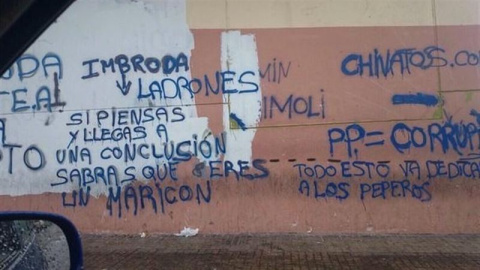 IMBRODA
LADRONES
SI PIENSAS
Y LLEGAS A
UNA CONCLUSIÓN
SABRAS QUE ERES
UN MARICON
MIN
IMOLI
CHINATOSS.CO
PP.= CORRUP
TODO ESTO VA DEDICA
A LOS PEPEROS